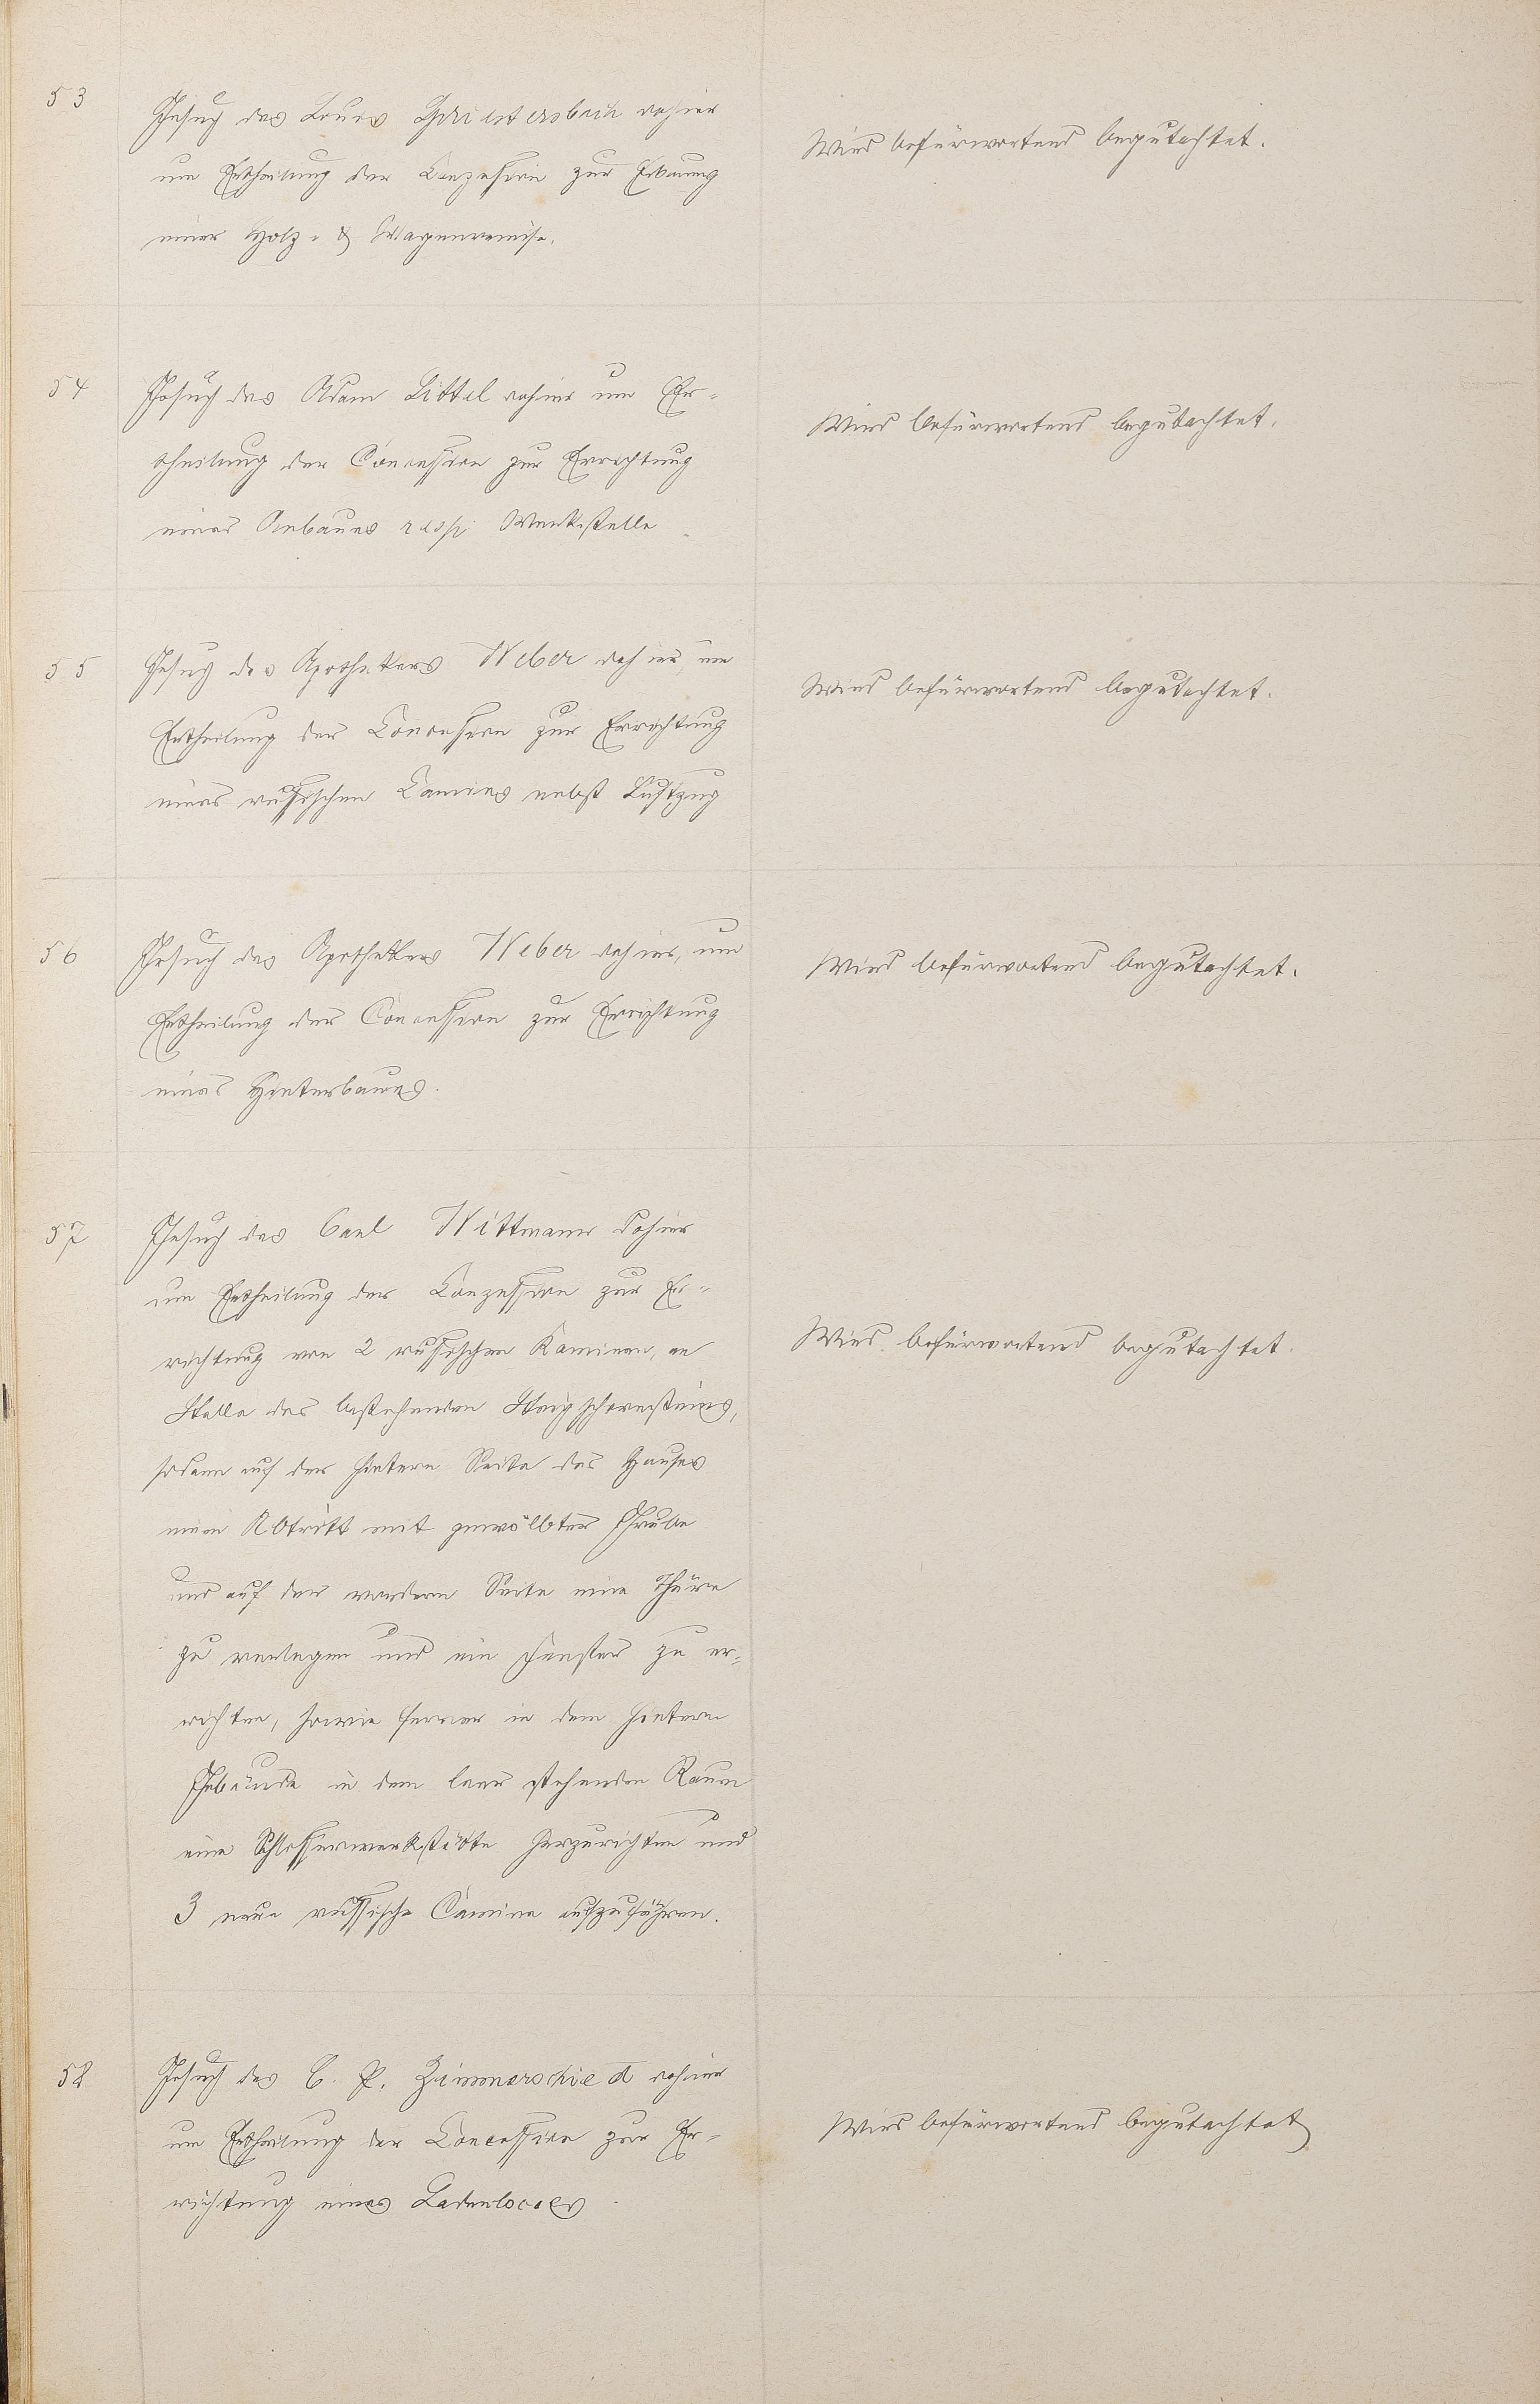 53
Gesuch des Louis Gerstersbach dahier
um Ertheilung der Conzession zur Erbauung
einer Holz- & Wagenremise.
Wird befürwortend begutachtet.
54
Gesuch des Adam Littel dahier um Er-
theilung der Concession zur Errichtung
eines Anbaues resp. Werkstelle
Wird befürwortend begutachtet.
55
Gesuch des Apothekers Weber dahier, um
Ertheilung der Concession zur Errichtung
eines russischen Camines nebst Luftzug
Wird befürwortend begutachtet.
56
Gesuch des Apothekers Weber dahier, um
Ertheilung der Concession zur Errichtung
eines Hinterbaues.
Wird befürwortend begutachtet.
57
Gesuch des Carl Wittmann dahier
um Ertheilung der Conzession zur Er-
richtung von 2 russischen Kaminen, an
Stelle des bestehenden Steigschornsteins,
sodann auf der hintern Seite des Hauses
einen Abtritt mit gewölbter Grube
und auf der vordern Seite eine Thüre
zu verlegen und ein Fenster zu er-
richten, sowie ferner in dem hintern
Gebäude in dem leer stehenden Raum
eine Schlosserwerkstätte herzurichten und
3 neue russische Camine aufzuführen.
Wird befürwortend begutachtet.
58
Gesuch des C. P. Zimmerschied dahier
um Ertheilung der Concession zur Er-
richtung eines Ladenlocales
Wird befürwortend begutachtet